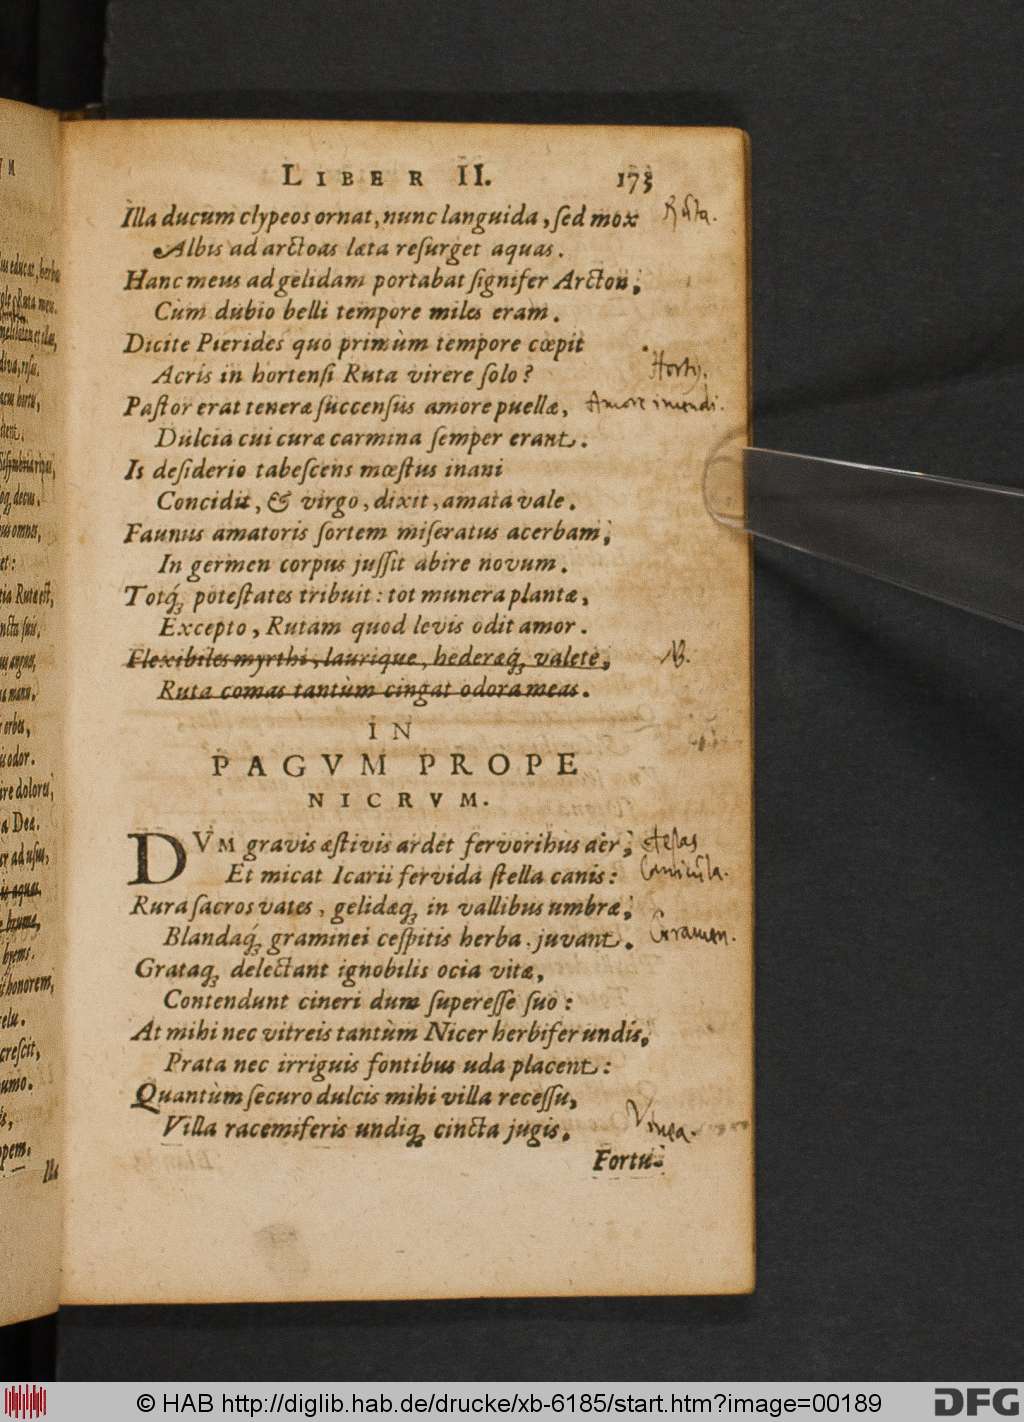 LIBER II. 173
Illa ducum clypeos ornat, nunc languida, ſed mox
Ruta.
Albis ad arctoas læta reſurget aquas.
Hanc meus ad gelidam portabat ſignifer Arcton;
Cum dubio belli tempore miles eram.
Dicite Pierides quo primùm tempore cœpit
Acris in hortenſi Ruta virere ſolo?
Paſtor erat teneræ ſuccenſus amore puellæ,
Amore
Dulcia cui curæ carmina ſemper erant.
Is deſiderio tabeſcens mœſtus inani
Concidit, & virgo, dixit, amata vale.
Faunus amatoris ſortem miſeratus acerbam;
In germen corpus juſſit abire novum.
Totq́; poteſtates tribuit: tot munera plantæ,
Excepto, Rutam quod levis odit amor.
Flexibiles myrthi, laurique, hederæq́; valete,
NB.
Ruta comas tantùm cingat odora meas.
IN
PAGVM PROPE
NICRVM.
DVM gravis æſtivis ardet fervoribus aër;
Et micat Icarii fervida ſtella canis:
Canicula.
Rura ſacros vates, gelidæq; in vallibus umbræ;
Blandaq́; graminei ceſpitis herba juvant.
Gramen.
Grataq; delectant ignobilis ocia vitæ,
Contendunt cineri dum ſupereſſe ſuo:
At mihi nec vitreis tantùm Nicer herbifer undis,
Prata nec irriguis fontibus uda placent:
Quantùm ſecuro dulcis mihi villa receſſu,
Villa racemiferis undiq; cincta jugis.
Vinea.
Fortu-
© HAB http://diglib.hab.de/drucke/xb-6185/start.htm?image=00189
DFG